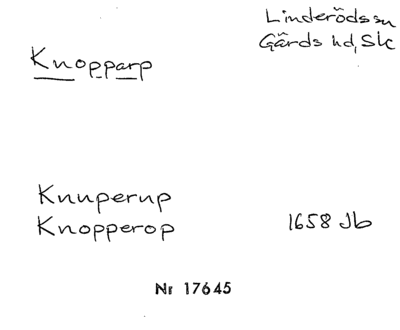 Linderöds sn
Gärds hd, Sk
Knopparp
Knuperup
Knopperop 1658 Jb
Nr 17645